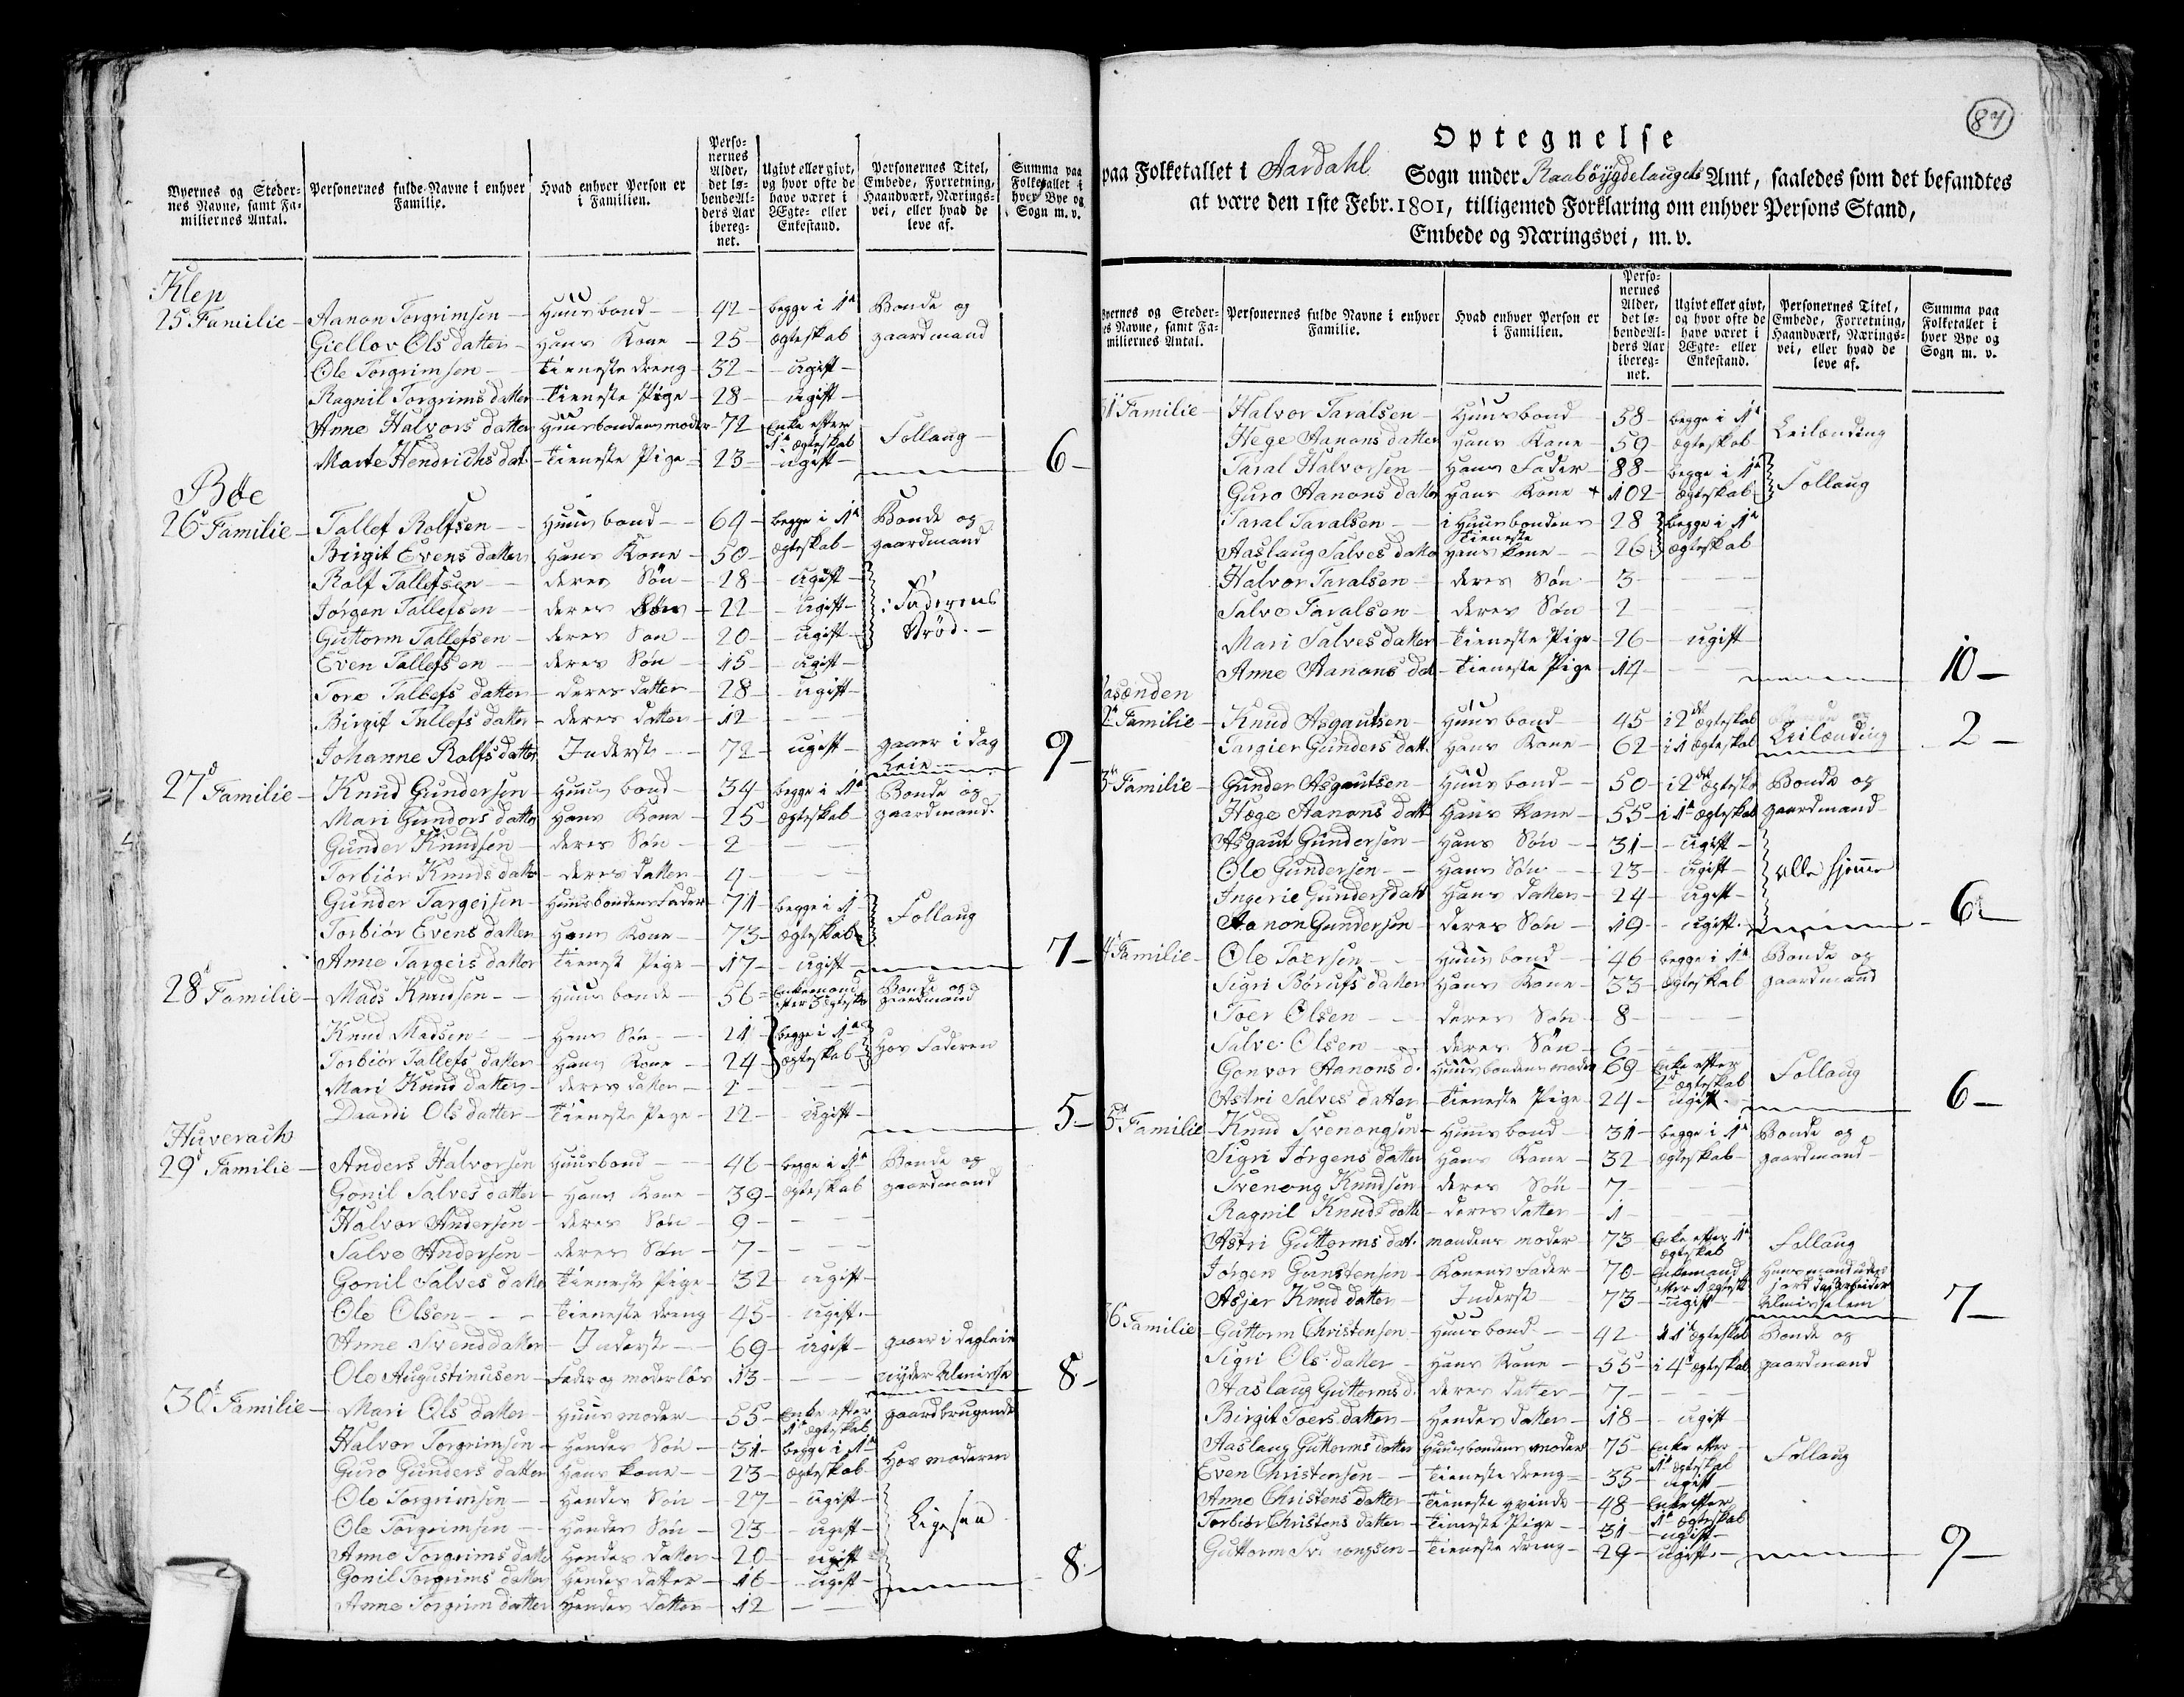 Byernes og Steder-
nes Navne, samt Fa-
miliernes Antal.
Personernes fulde Navne i enhver
Familie.
Hvad enhver Person er
i Familien.
Perso-
nernes
Alder,
det lø-
bende Al-
ders Aar
ibereg-
net.
Ugivt eller givt,
og hvor ofte de
have været i
Ægte- eller
Enkestand.
Personernes Titel,
Embede, Forretning,
Haandværk, Nærings-
vei, eller hvad de
leve af.
Summa paa
Folketallet i
hver Bye og
Sogn m. v.
Klep
25 Familie - Aanon Torgrimsen - Huusbond - 42 - begge i 1te Bonde og
Giellov Ols datter - Hans Kone - 25 - ægteskab gaardmand
Ole Torgrimsen - tieneste dreng - 32 - ugift -
Ragnil Torgrims datter - tieneste Pige - 28 - ugift -
Anne Halvors datter Huusbondens moder - 72 - Enke efter 1te ægteskab Follaug -
Marte Hendrichs dat. - tieneste Pige - 23 - ugift - 6 -
Bøe
26 Familie - Tallef Rolfsen - Huusbond - 64 - begge i 1te Bonde og
Birgit Evens datter Hans Kone - 50 - ægteskab - gaardmand
Rolf Tallefsen - deres Søn - 28 - ugift -
Jørgen Tallefsen - deres Søn - 22 - ugift - i Faderens
Guttorm Tallefsen - deres Søn - 20 - ugift - Brød. -
Even Tallefsen - deres Søn - 15 - ugift -
Tore Tallefs datter - deres datter - 28 - ugift -
Birgit Tallefs datter - deres datter - 12 -
Johanne Rolfs datter Inderste - 72 - ugift - gaaer i dag
Leie - 9 -
27 Familie - Knud Gundersen - Huusbond - 34 - begge i 1te Bonde og
Mari Gunders datter Hans Kone - 25 - ægteskab - gaardmand.
Gunder Knudsen - deres Søn - 2
Torbiør Knuds datter - deres datter - 4 -
Gunder Targeisen - Huusbondens Fader - 71 - begge i 1te
Torbiør Evens datter Hans Kone - 73 - ægteskab Follaug
Anne Targeis datter tieneste Pige - 17 - ugift - 7 -
28 Familie - Mads Knudsen - Huusbonde - 56 - Enkemand efter 3 ægteskab Bonde og gaardmand
Knud Madsen - Hans Søn - 21 - begge i 1te
Torbiør Tallefs datter - Hans Kone - 24 - ægteskab - Hos Faderen
Mari Knud datter - deres datter - 2 -
Daardi Ols datter - tieneste Pige - 22 - ugift - 5 -
Huverach
29 Familie - Anders Halvorsen Huusbond - 46 - begge i 1te Bonde og
Gonil Salves datter - Hans Kone - 39 - ægteskab gaardmand
Halvor Andersen - deres Søn - 9 -
Salve Andersen - deres Søn - 7 -
Gonil Salves datter tieneste Pige - 32 - ugift -
Ole Olsen - tieneste dreng - 45 - ugift. -
Anne Svend datter - Inderste - 69 - ugift - gaaer i dagleie
Ole Augustinusen - Fader og moderløs - 13 - nyder Almisse 8 -
30 Familie - Mari Ols datter - Huusmoder - 55 - Enke efter 1te ægteskab gaardbrugende
Halvor Torgrimsen - Hendes Søn - 31 - begge i 1te
Guro Gunders datter Hans kone - 23 - ægteskab - Hos moderen
Ole Torgrimsen - Hendes Søn - 27 - ugift -
Ole Torgrimsen - Hendes Søn - 23 - ugift - Ligesaa
Anne Torgrims datter Hendes datter - 20 - ugift
Gonil Torgrims datter Hendes datter - 16 - ugift - 8 -
Anne Torgrim datter Hendes datter - 12 -
87
Optegnelse
paa Folketallet i Aardahl Sogn under Raabøygdelaugets Amt, saaledes som det befandtes
at være den 1ste Febr. 1801, tilligemed Forklaring om enhver Persons Stand,
Embede og Næringsvei, m. v.
Byernes og Steder-
nes Navne, samt Fa-
miliernes Antal.
Personernes fulde Navne i enhver
Familie.
Hvad enhver Person er
i Familien.
Perso-
nernes
Alder,
det lø-
bende Al-
ders Aar
ibereg-
net.
Ugivt eller givt,
og hvor ofte de
have været i
Ægte- eller
Enkestand.
Personernes Titel,
Embede, Forretning,
Haandværk, Nærings-
vei, eller hvad de
leve af.
Summa paa
Folketallet i
hver Bye og
Sogn m. v.
31 Familie - Halvor Taralsen - Huusbond - 58 - begge i 1te
Hege Aanons datter Hans Kone - 59 - ægteskab - Leilænding
Taral Halvorsen - Hans Fader - 88 - begge i 1te
Guro Aanons datter Hans Kone + 102 - ægteskab Follaug
Taral Taralsen - i Huusbondens tieneste - 28 begge i 1te
Aaslaug Salves datter Hans kone - 26 ægteskab
Halvor Taralsen - deres Søn - 3 -
Salve Taralsen - deres Søn 2
Mari Salves datter - tieneste Pige - 26 - ugift -
Anne Aanons dat - tieneste Pige - 14 - 10 -
asænden
2 Familie - Knud Asgautsen - Huusbond - 45 - i 2det ægteskab
Targier Gunders datt. Hans Kone - 62 - i 1 ægteskab Leilænding 2 -
3 Familie - Gunder Asgautsen - Huusbond - 50 - i 2det ægteskab Bonde og
Hæge Aanons datt Hans Kone - 55 - i 1te ægteskab gaardmand -
Asgaut Gundersen - Hans Søn - 31 - ugift -
Ole Gundersen - Hans Søn - 23 - ugift - alle hjemme
Ingerie Gunders datt Hans datter - 24 - ugift -
Aanon Gundersen - deres Søn - 19 - ugift. - 6 -
4 Familie - Ole Toersen - Huusbond - 46 - begge i 1te Bonde og
Sigri Børufs datter Hans Kone - 33 - ægteskab gaardmand
Toer Olsen - deres Søn - 8 -
Salve Olsen - deres Søn - 6 -
Gonvor Aanons d. Huusbondens moder 69 - Enke efter 2det ægteskab Follaug
Astri Salves datter - tieneste Pige - 24 - ugift. - 6 -
5 Familie - Knud Svenongsen - Huusbond - 31 - begge i 1te Bonde og
Sigri Jørgens datter Hans Kone - 32 - ægteskab - gaardmand -
Svenong Knudsen deres Søn - 7 -
Ragnil Knuds datter - deres datter - 1 -
Astri Guttorms dat. mandens moder - 73 - Enke efter 1te ægteskab Follaug
Jørgen Gunstensen - Konens Fader - 70 - Enkemand efter 1 ægteskab Huusmand uden jord dagarbeider
Asjer Knud datter - Inderste 73 - ugift Almisselem 7 -
36 Familie - Guttorm Christensen - Huusbond - 42 - i 1te ægteskab Bonde og
Sigri Ols datter - Hans Kone - 55 - i 4de ægteskab gaardmand
Aaslaug Guttorms d. deres datter - 7 -
Birgit Toers datter - Hendes datter - 18 - ugift
Aaslaug Guttorms datter Huusbondens moder 75 - Enke efter 1te ægteskab Follaug
Even Christensen - tieneste dreng - 35 - ugift -
Anne Christens datter - tieneste qvinde - 48 - Enke efter 1te ægteskab
Torbiør Christens datter - tieneste Pige - 31 - ugift -
Guttorm Svenongsen - tieneste dreng - 29 - ugift. - 9 -